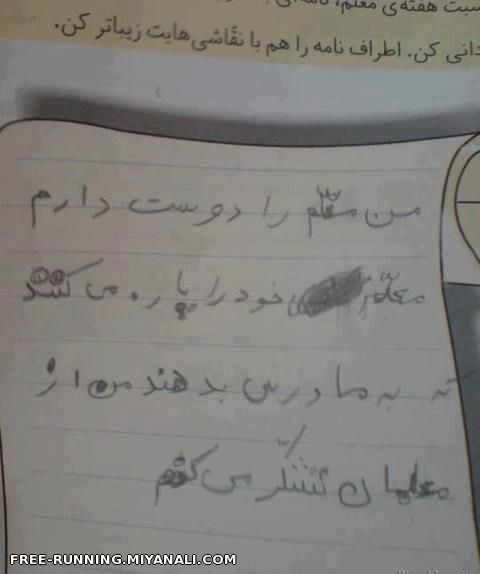 هفته‌ی معلّم، نامه‌ای
کن. اطراف نامه را هم با نقّاشی‌هایت زیباتر کن.
من معلّم را دوست دارم
معلّم خود را پاره می کند
که به ما درس بدهند من از
معلمان تشکّر می کنم
FREE-RUNNING.MIYANALI.COM